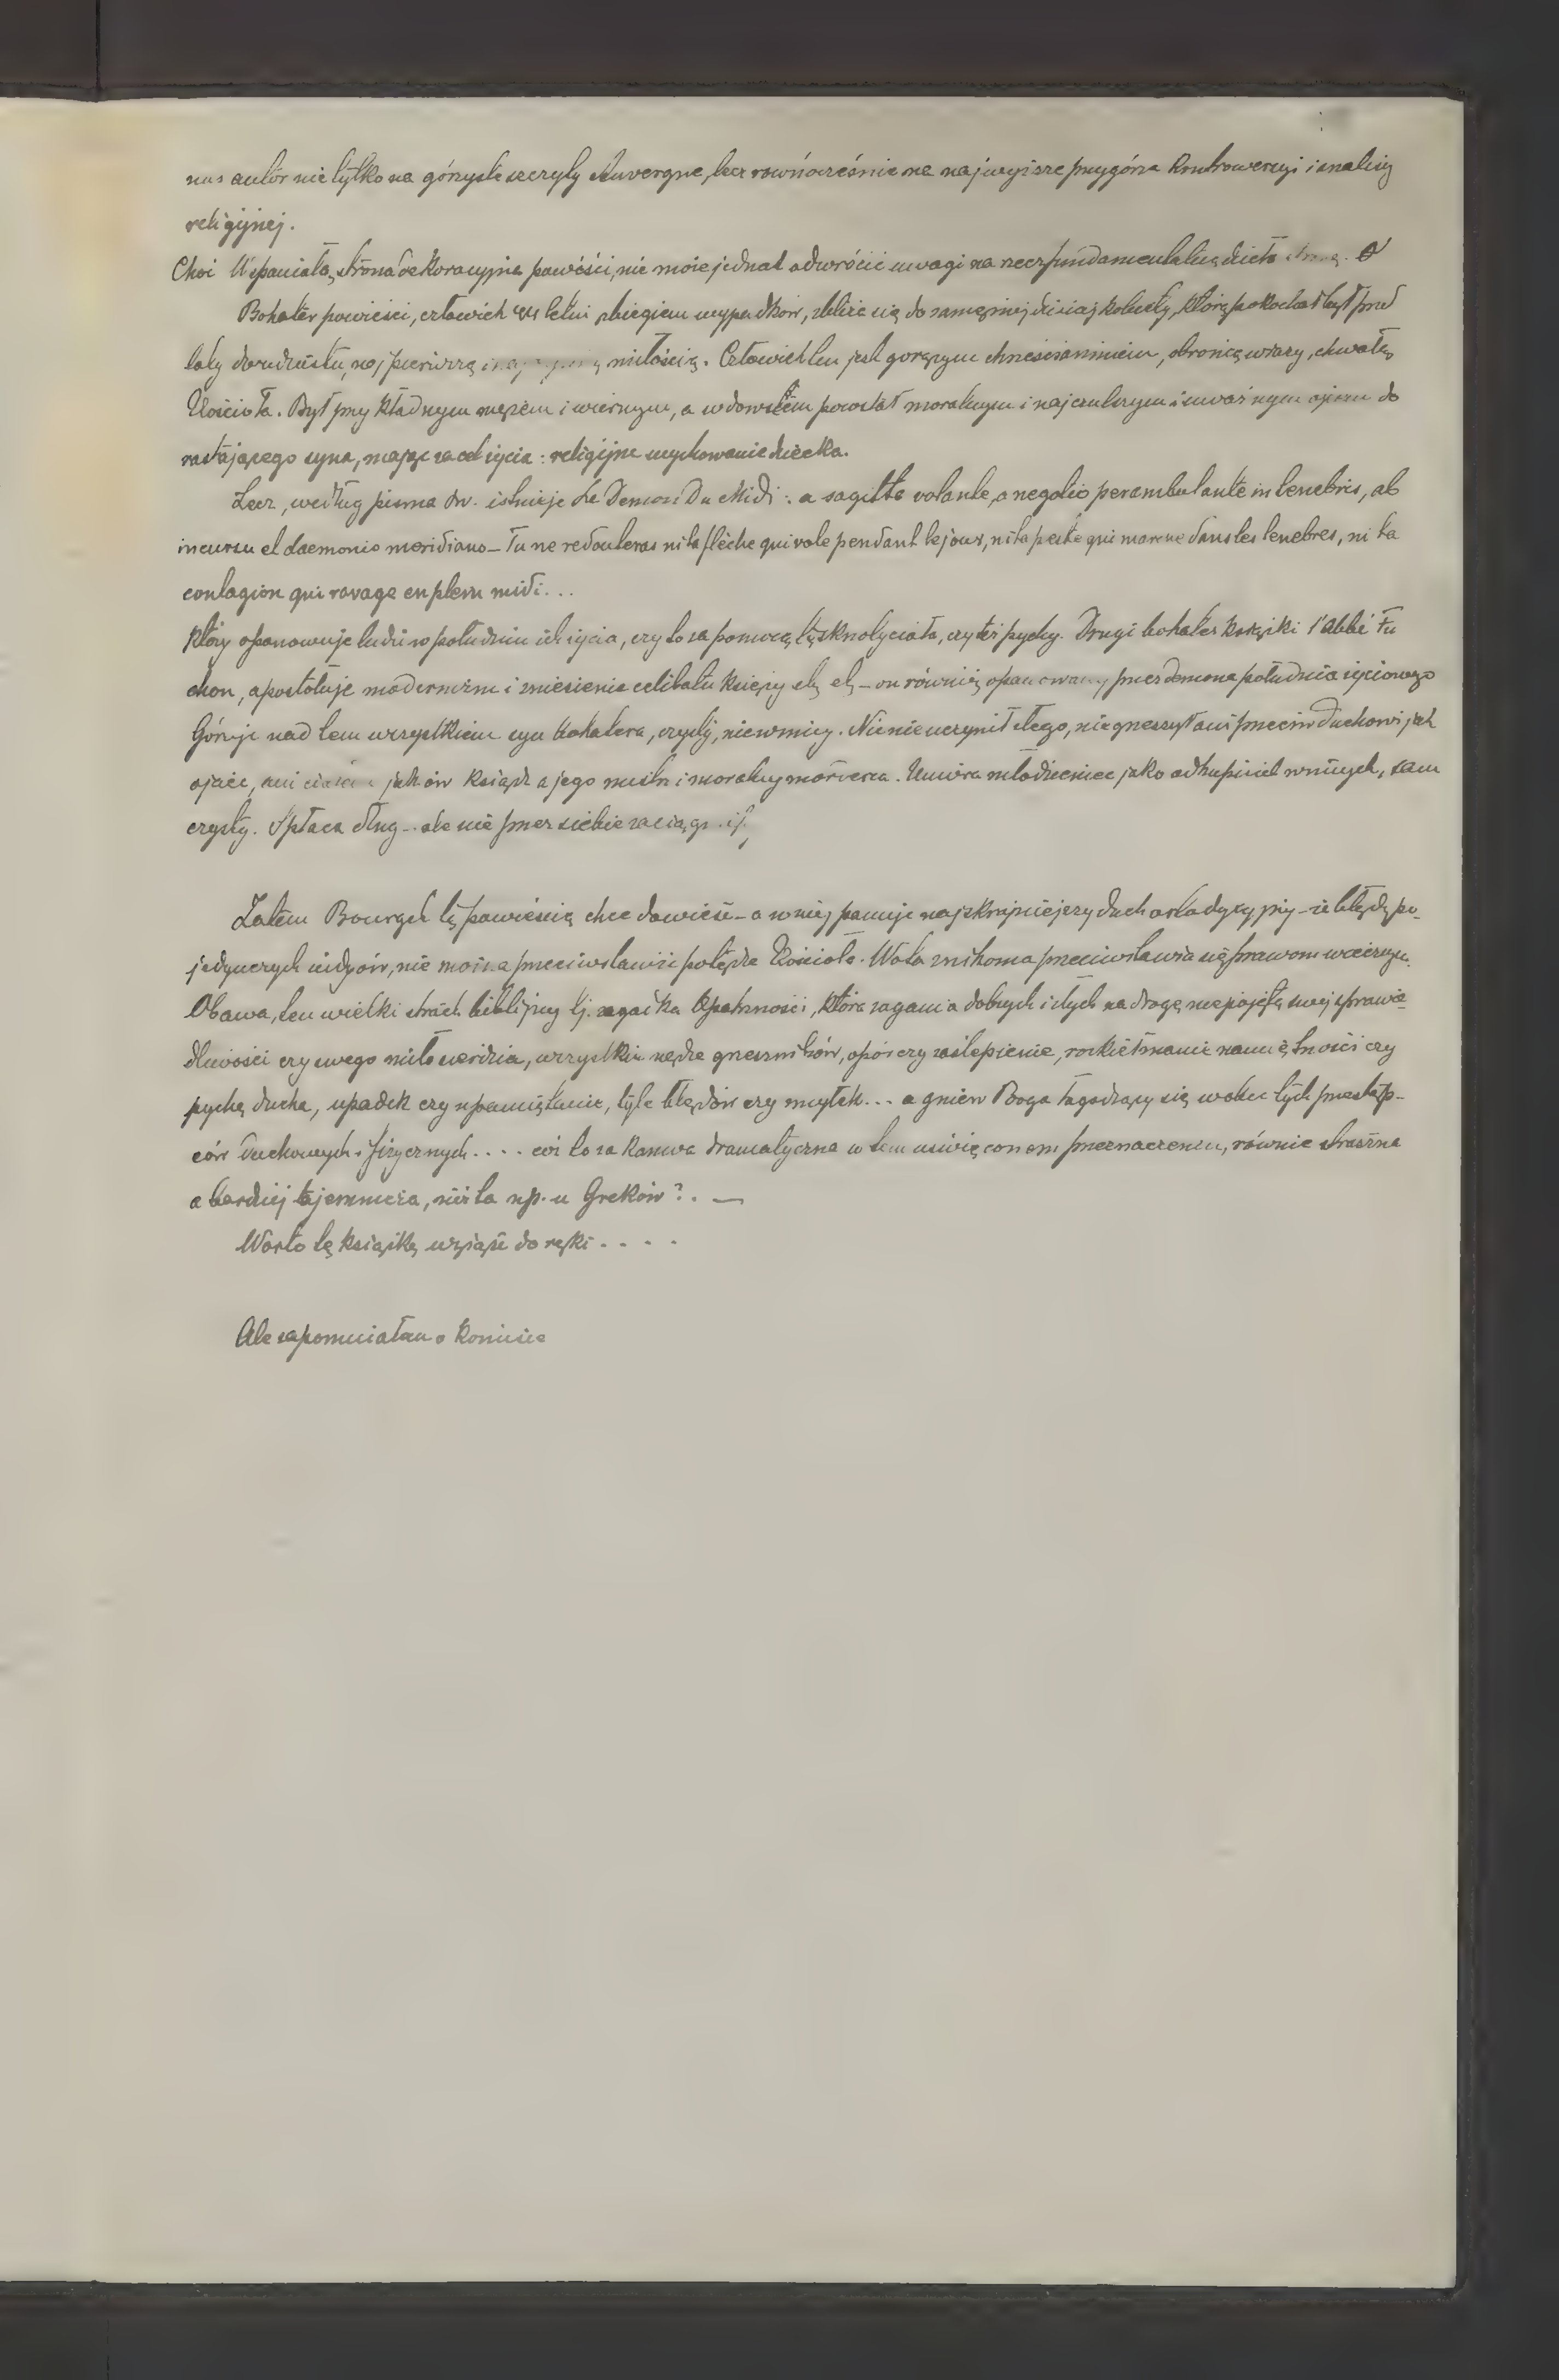 nas autor nie tylko na górzyste szczyty Auvergne, lecz równocześnie na najwyższe przygórza kontrowersyi i analizy
religijnej.
Choć wspaniała, strona dekoracyjna powieści, nie może jednak odwrócić uwagi na rzecz fundamentalną dzieła
Bohater powieści, człowiek 44 letni zbiegiem wypadków, zbliża się do zamężnej dzisiaj kobiety, którą pokochał był przed
laty dwudziestu, najpierwszą miłością. Człowiek ten jest gorącym chrześcianinem, obrońcą wiary, chwałą
Kościoła. Był przykładnym mężem i wiernym, a wdowcem pozostał moralnym i najczulszym i uważnym ojcem do
rastającego syna, mając za cel życia: religijne wychowanie dziecka.
Lecz, według pisma św. istnieje Le Demon Du Midi: a sagitta volante, a negotio perambulante in tenebris, ab
incursu et daemonio meridiano – Tu ne redouteras ni la flèche qui vole pendant le jour, ni la peste qui marche dans les tenebres, ni la
contagion qui ravage en plein midi...
który opanowuje ludzi w południu ich życia, czy to za pomocą tęsknoty ciała, czy też pychy. Drugi bohater książki l'abbé Fu
chon, apostołuje modernizm i zniesienie celibatu księży etc etc – on również opanowany przez demona południa życiowego
Góruje nad tem wszystkiem syn bohatera, czysty, niewinny. Nic nie uczynił złego, nie grzeszył ani przeciw duchowi jak
ojciec, ani ciału jak ów ksiądz a jego mistrz i moralny morderca. Umiera młodzieniec jako odkupiciel winnych, sam
czysty. Spłaca dług – ale nie przez siebie zaciągnięty.
Zatem Bourget tą powieścią chce dowieść – a w niej panuje najskrajniejszy duch ortodyksyjny – że błędy po-
jedynczych widzów, nie można przeciwstawić potędze Kościoła. Wola znikoma przeciwstawia się prawom wiecznym.
Obawa, ten wielki strach biblijny tj. zagadka Opatrzności, która zagania dobrych i złych na drogę niepojętą swej sprawie-
dliwości czy swego miłosierdzia, wszystkie nędze grzeszników, opór czy zaślepienie, rozkiełznanie namiętności czy
pychę ducha, upadek czy upamiętanie, tyle błędów czy omyłek... a gniew Boga łagodzący się wobec tych przestęp-
ców duchowych i fizycznych.... cóż to za kanwa dramatyczna w tem uświęconem przeznaczeniu, równie straszna
a bardziej tajemnicza, niż ta np. u Greków?. —
Warto tę książkę wziąść do ręki....
Ale zapomniałem o koniusie